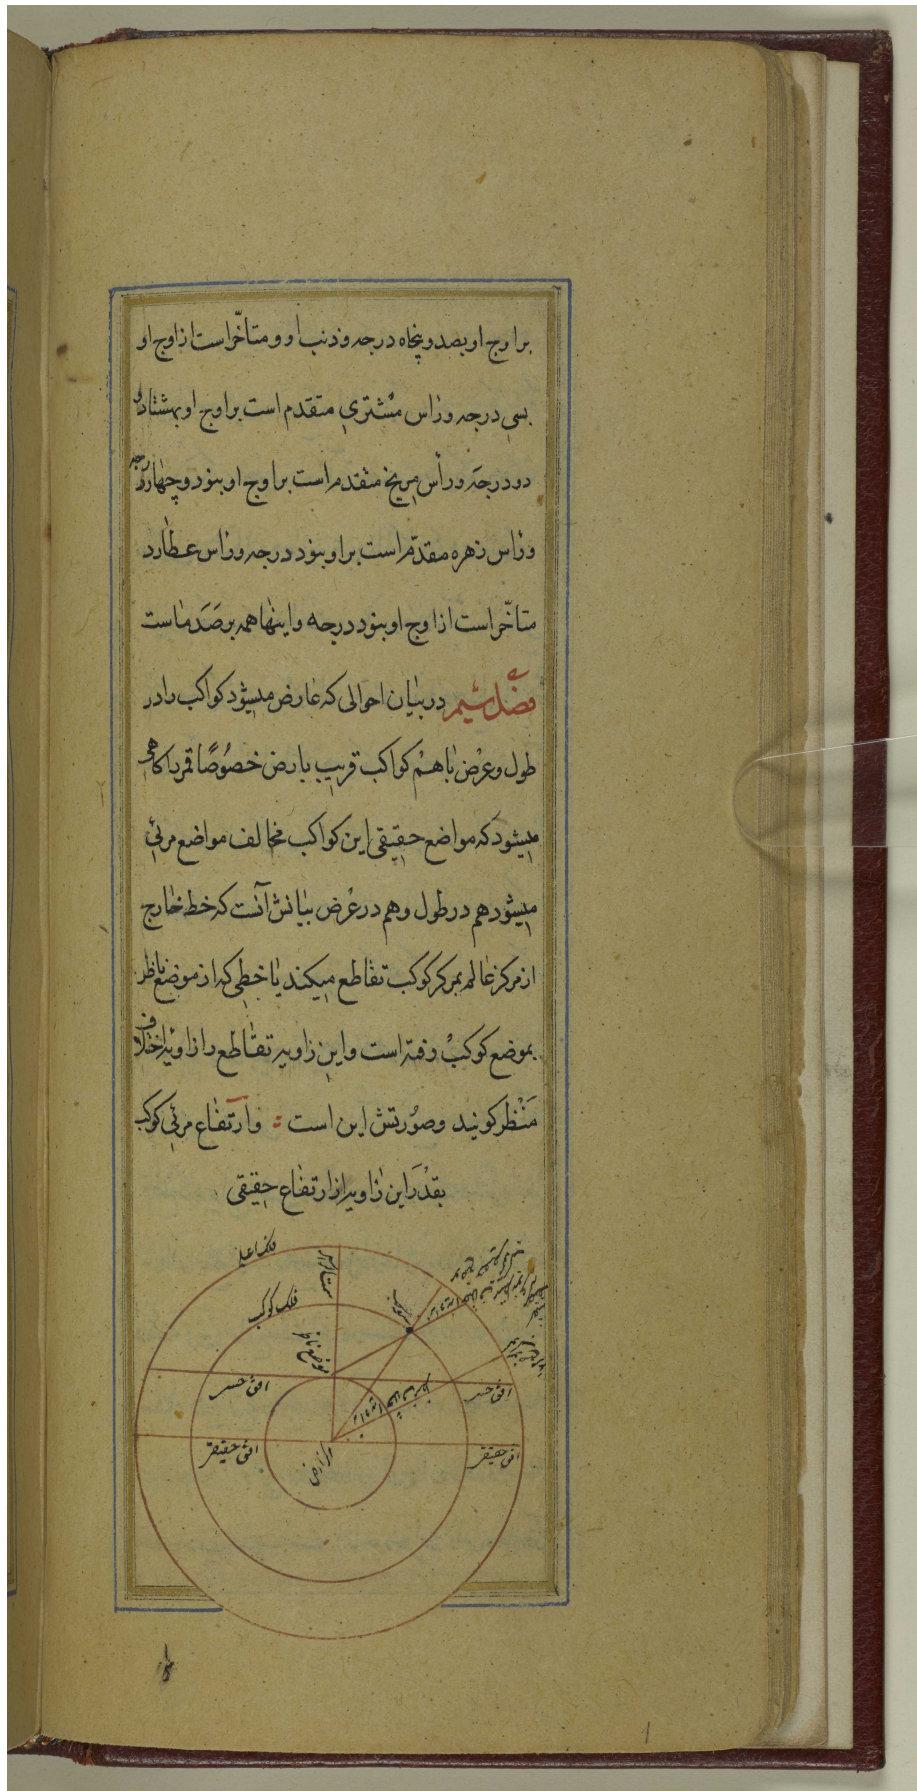 بر اوج او بصد و پنجاه درجه و ذنب او و متاخّر است از اوج او
بسی درجه و راس مشتری متقدم است بر اوج او بهشتاد و
دو درجه و رأس مریخ متقدم است بر اوج او بنود و چهار درجه
و راس زهره مقدّم است بر او بنود درجه و راس عطارد
متاخّر است از اوج او بنود درجه و اینها همه برصد ماست
فصل ششم در بیان احوالی که عارض میشود کواکب را در
طول و عرض باهم کواکب قریب بارض خصوصًا قمر را گاهی
میشود که مواضع حقیقی این کواکب مخالف مواضع مرئی
میشود هم در طول و هم در عرض بیانش آنست که خط خارج
از مرکز عالم بمرکز کوکب تقاطع میکند با خطی که از موضع ناظر
بموضع کوکب رفته است و این زاویه تقاطع را زاویه اختلاف
مَنْظر کویند و صورتش این است و ارتفاع مرئی کوکب
بقدر این زاویه از ارتفاع حقیقی
فلک اعلی
سمت الراس
فلک کوکب
کوکب
موضع ناظر
افق حسی
افق حسی
افق حقیقی
افق حقیقی
مرکز ارض